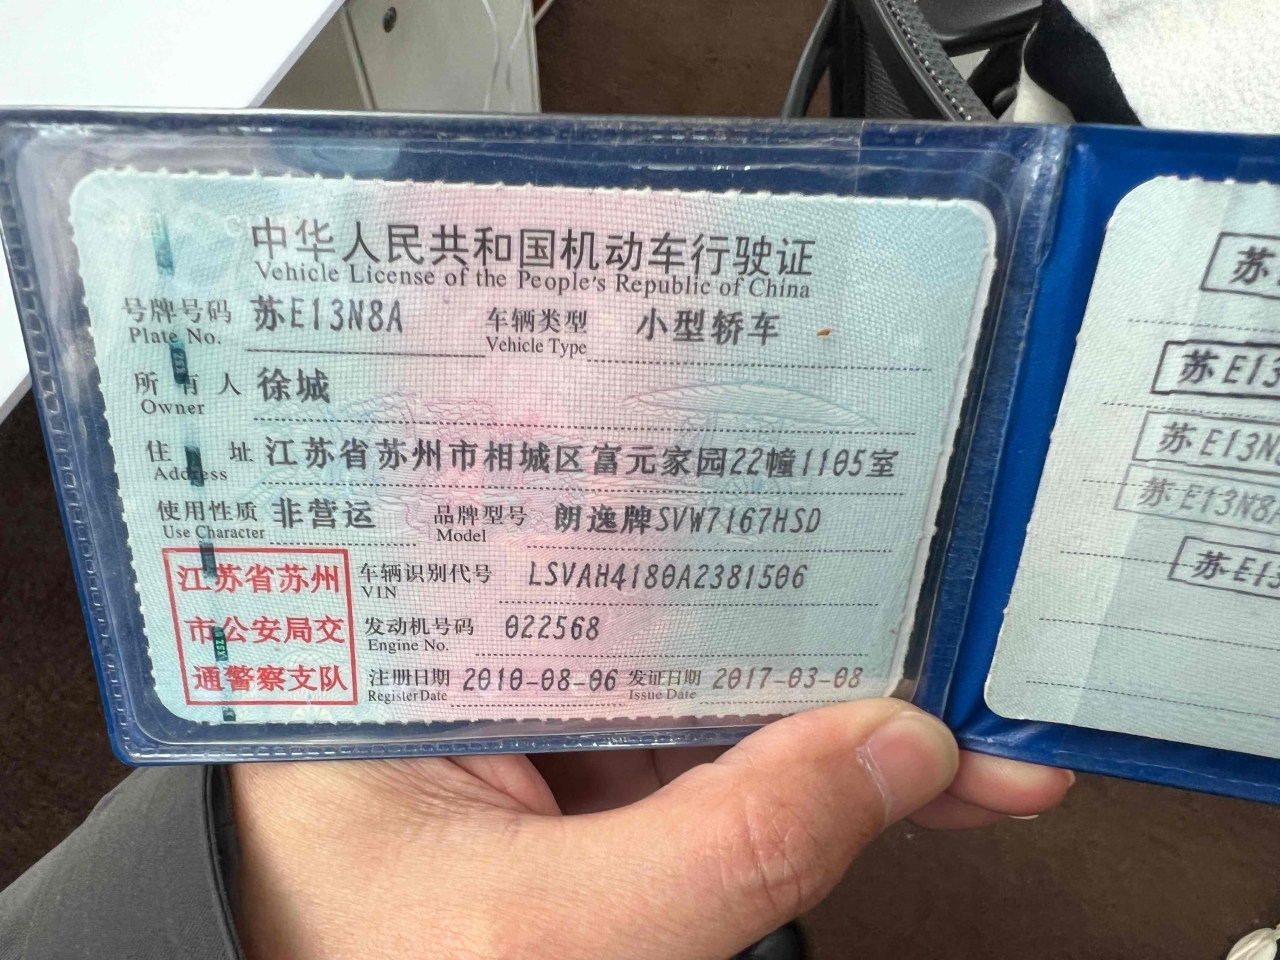 中华人民共和国机动车行驶证
Vehicle License of the People's Republic of China
号牌号码 苏E13N8A 车辆类型 小型轿车
Plate No. Vehicle Type
所有人 徐城
Owner
住址 江苏省苏州市相城区富元家园22幢1105室
Address
使用性质 非营运 品牌型号 朗逸牌SVW7167HSD
Use Character Model
江苏省苏州
市公安局交
通警察支队
车辆识别代号 LSVAH4180A2381506
VIN
发动机号码 022568
Engine No.
注册日期 2010-08-06 发证日期 2017-03-08
Register Date Issue Date
苏
苏E13
苏E13N
苏E13N8
苏E13